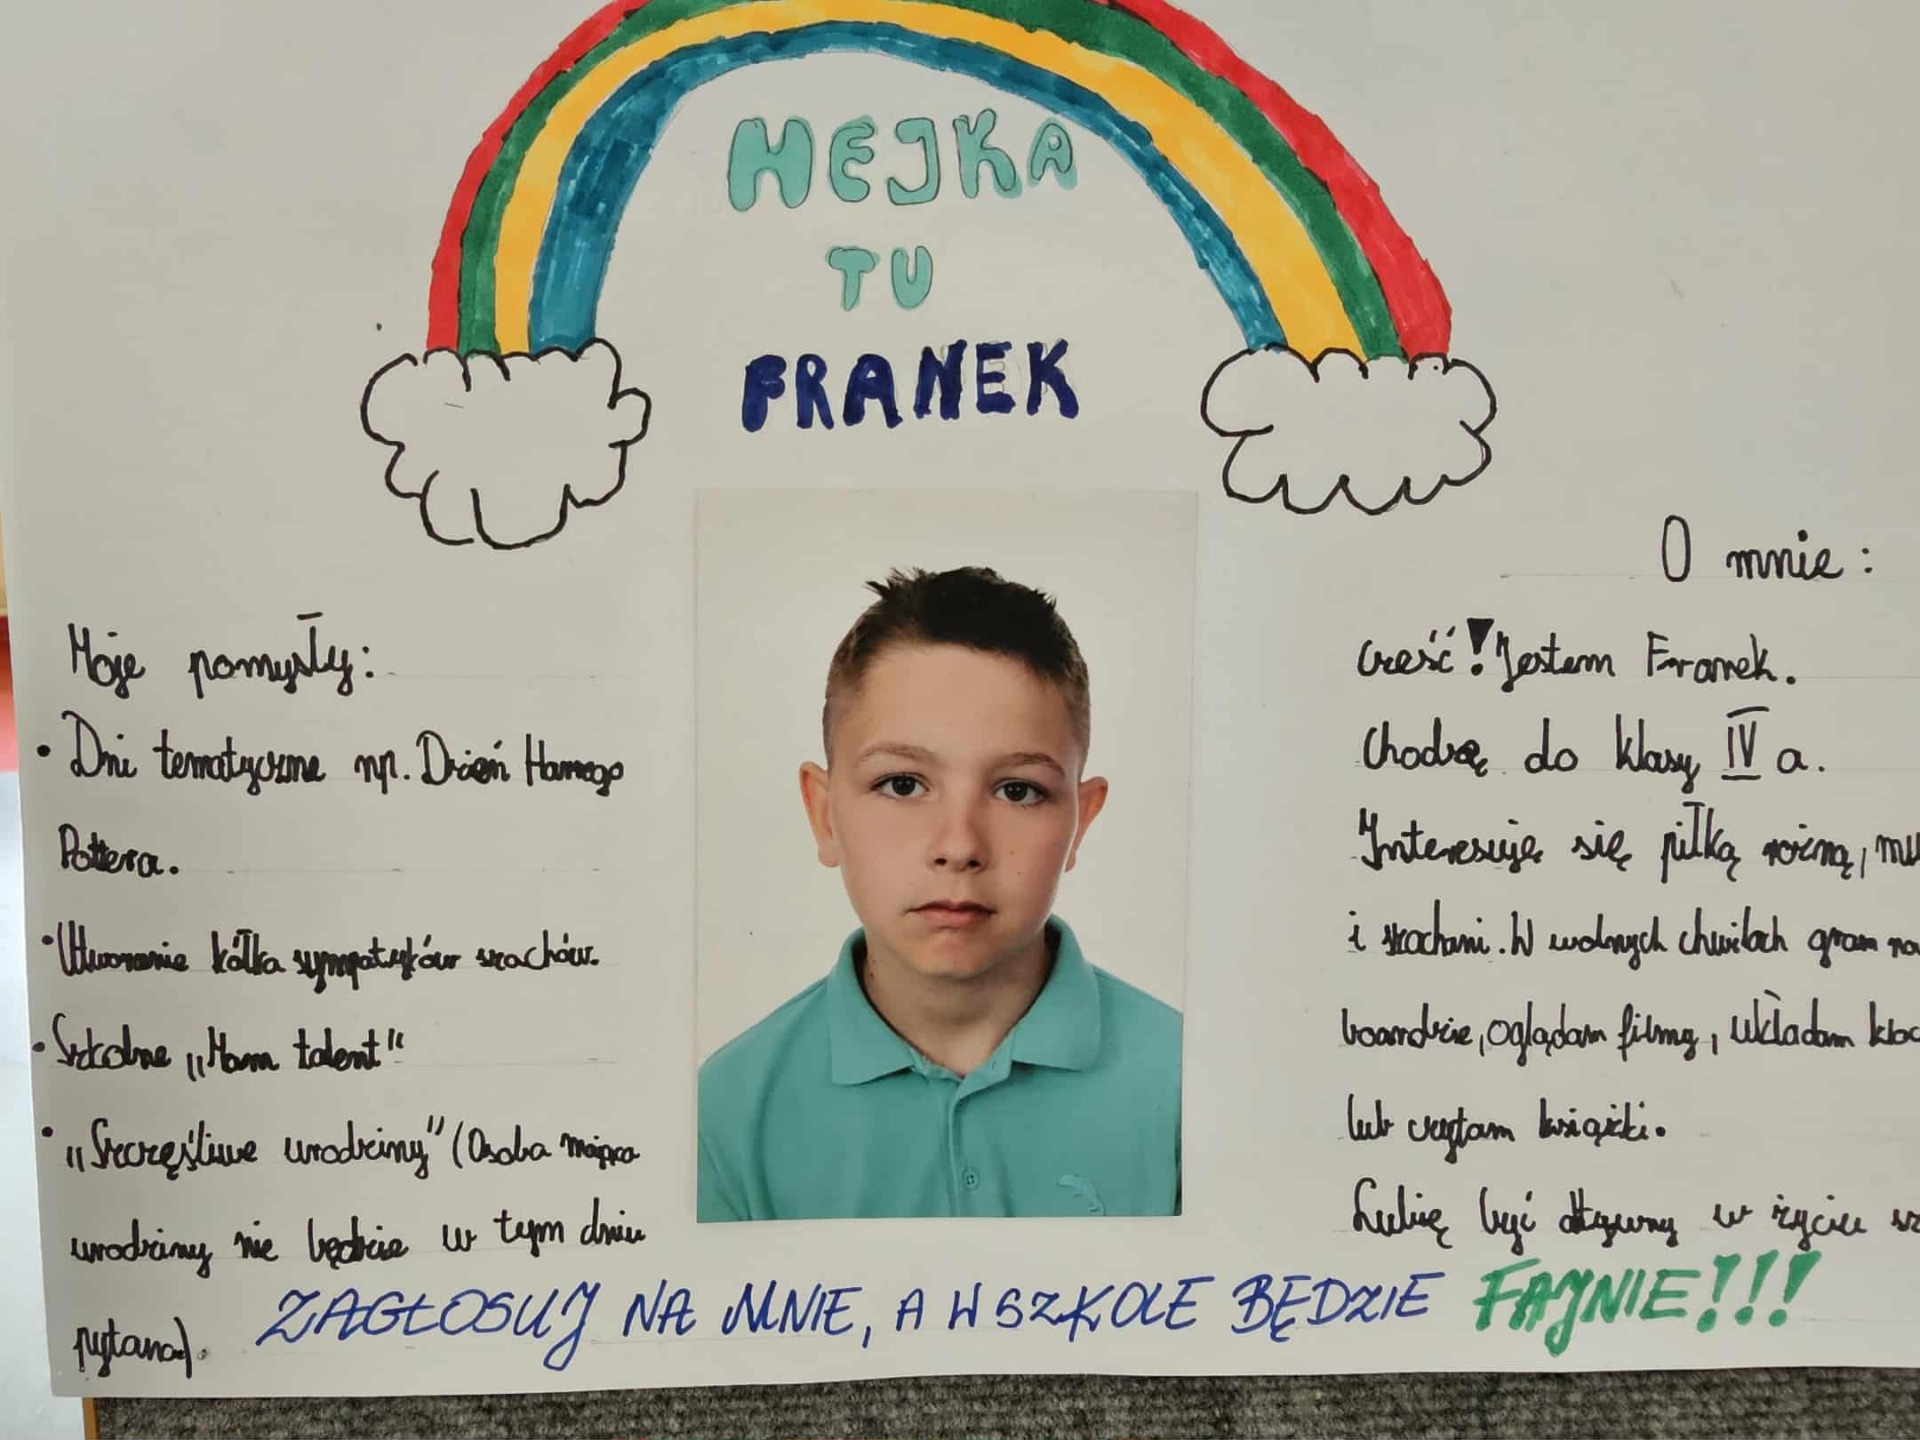 HEJKA
TU
FRANEK
Moje pomysły:
• Dni tematyczne np. Dzień Harrego
Pottera.
• Utworzenie kółka sympatyków szachów.
• Szkolne „Mam talent"
• „Szczęśliwe urodziny" (Osoba mająca
urodziny nie będzie w tym dniu
pytana).
O mnie:
Cześć! Jestem Franek.
Chodzę do klasy IV a.
Interesuję się piłką nożną, mu
i szachami. W wolnych chwilach gram na
boardzie, oglądam filmy, układam kloc
lub czytam książki.
Lubię być aktywny w życiu sz
ZAGŁOSUJ NA MNIE, A W SZKOLE BĘDZIE FAJNIE!!!